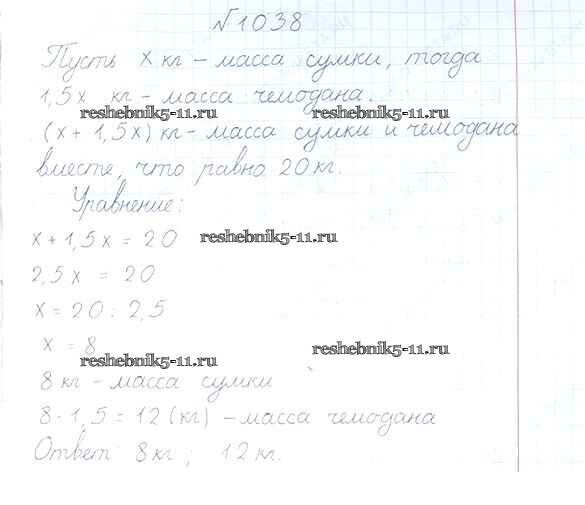 №1038
Пусть x кг – масса сумки, тогда
1,5x кг – масса чемодана.
reshebnik5-11.ru reshebnik5-11.ru
(x + 1,5x) кг – масса сумки и чемодана
вместе, что равно 20 кг.
Уравнение:
x + 1,5x = 20 reshebnik5-11.ru
2,5x = 20
x = 20 : 2,5
x = 8
reshebnik5-11.ru reshebnik5-11.ru
8 кг – масса сумки
8 · 1,5 = 12 (кг) – масса чемодана
Ответ: 8 кг; 12 кг.